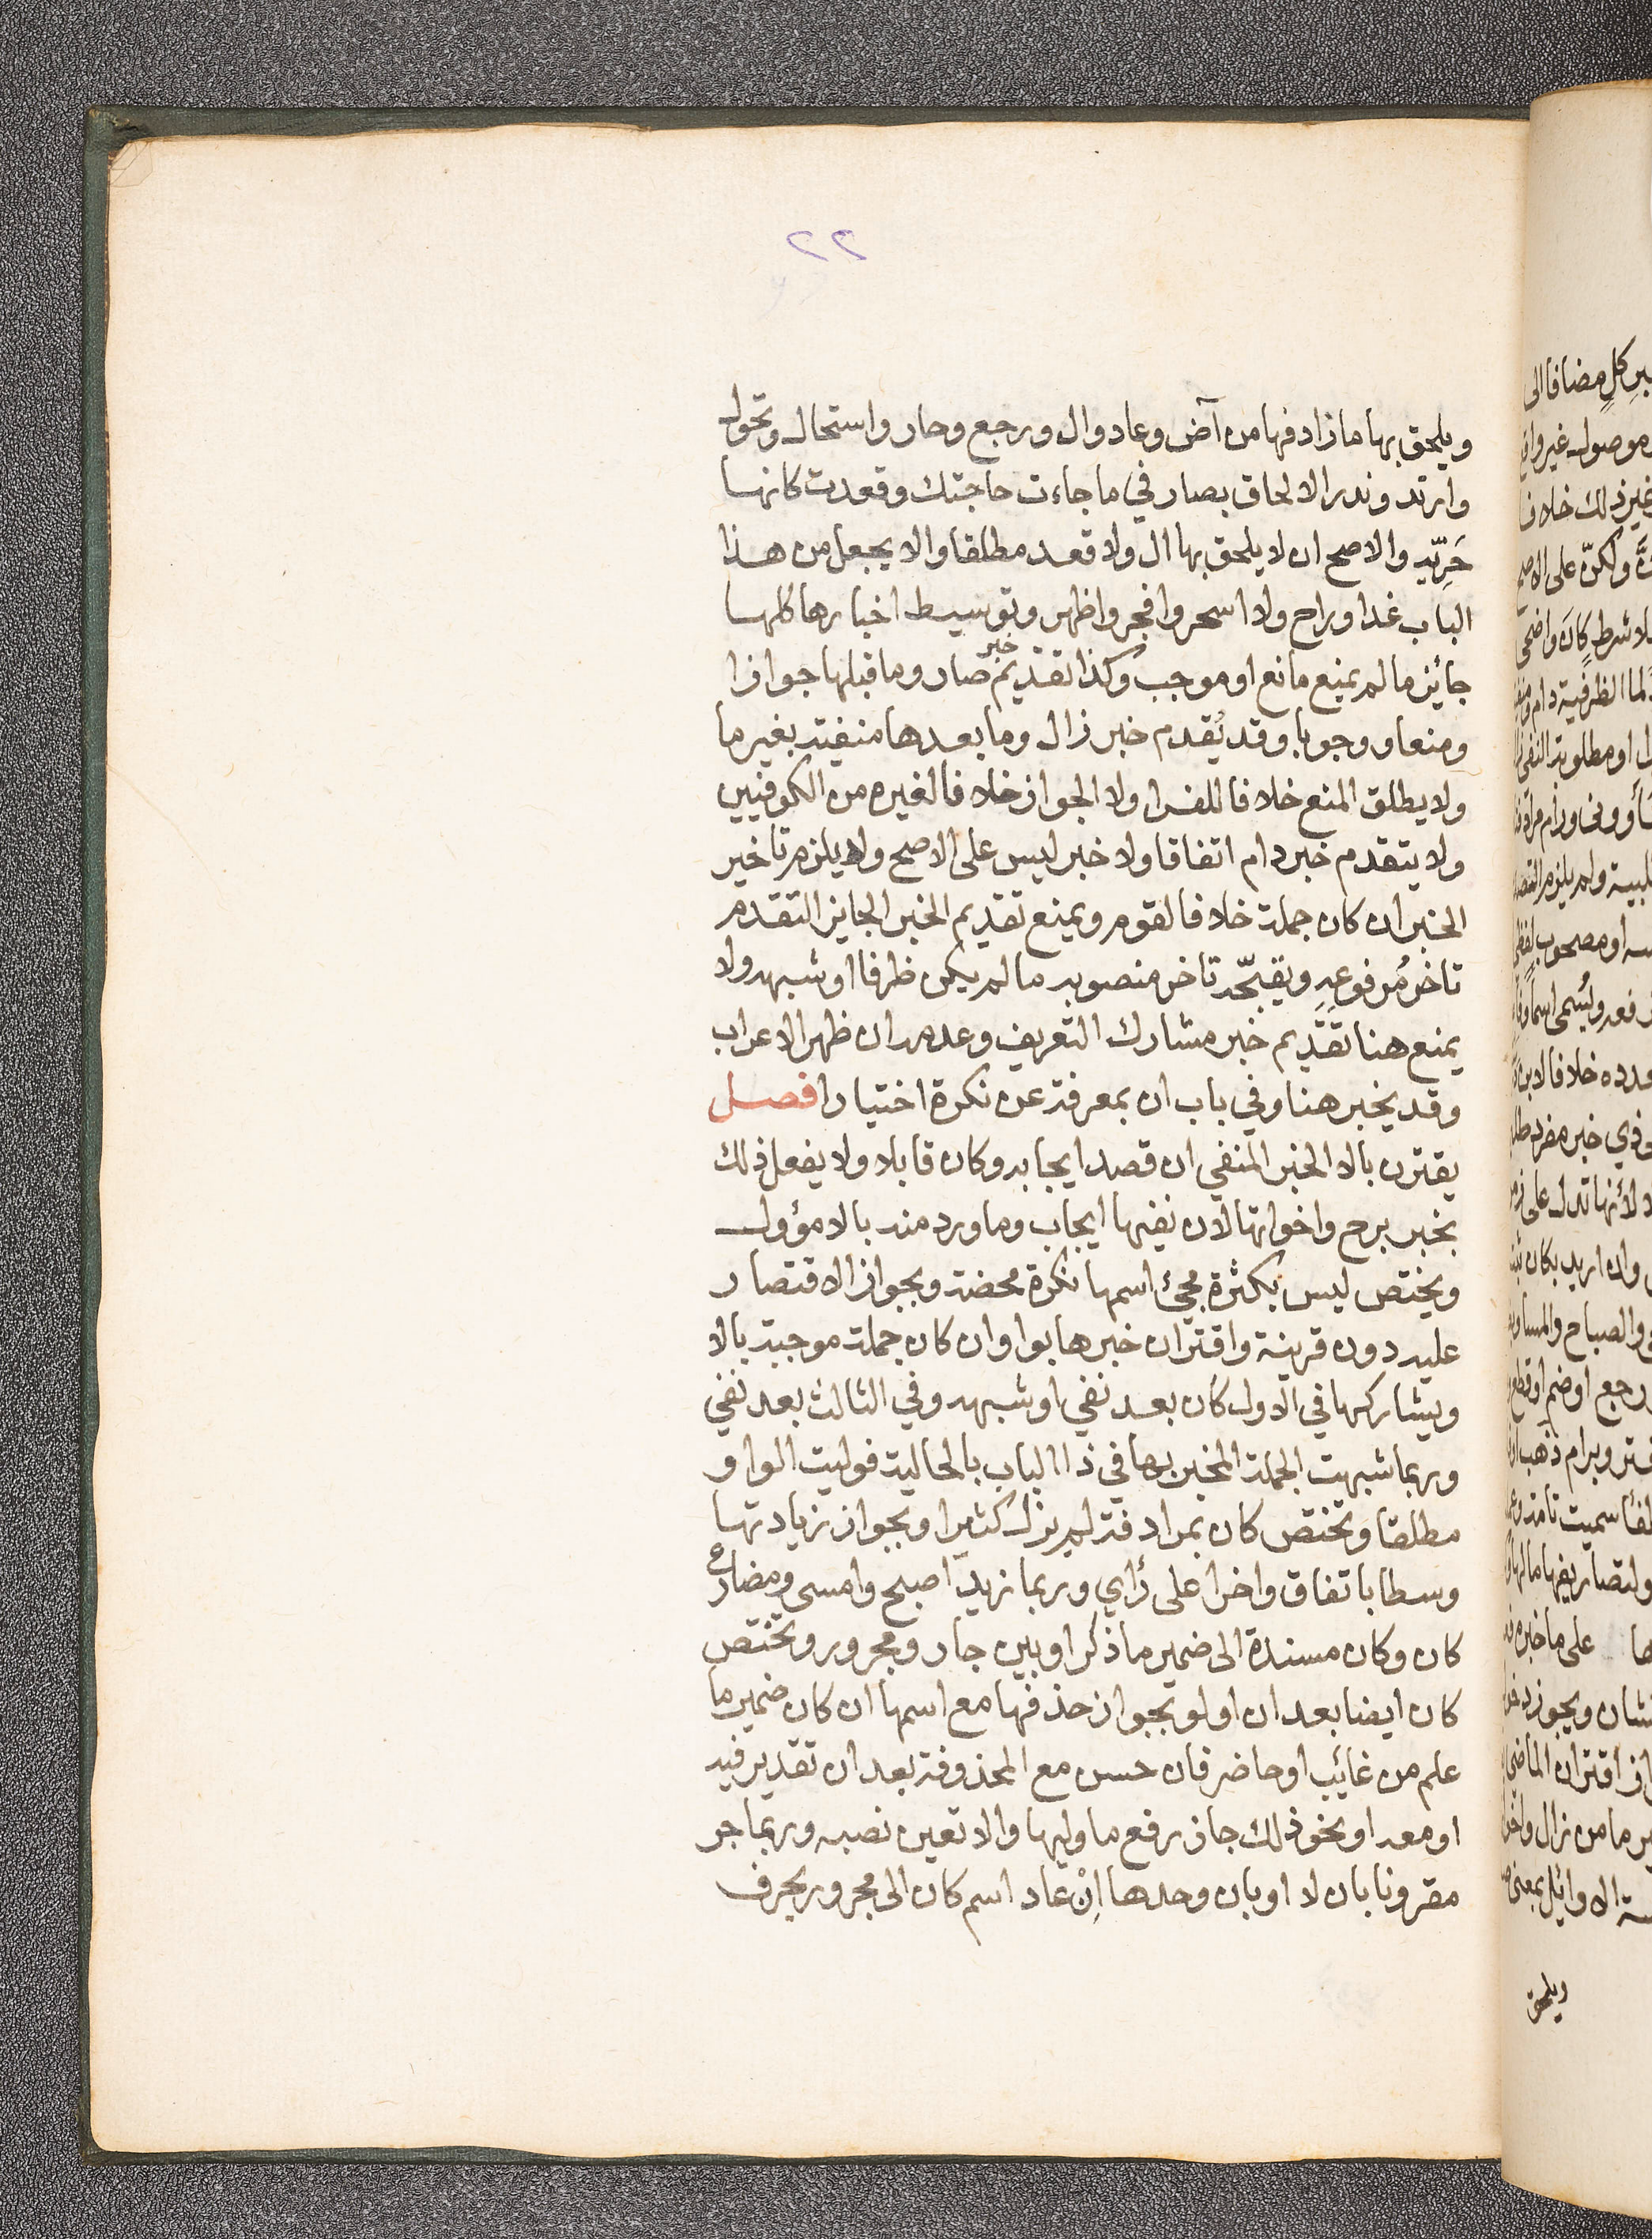 ٢٢
ويلحق بها ما زاد فها من آض وعاد وال ورجع وحار واستحال وتحول
وارتد وندر الالحاق بصار في ما جاءت حاجتك وقعدت كانها
حَرِبّه والاصح ان لا يلحق بها ال ولا قعد مطلقا والا يجعل من هذا
الباب غدا وراح ولا اسحر وافجر واظهر وتوسيط اخبارها كلها
جائز ما لم يمنع مانع او موجب وكذا تقديم خبر صار وما قبلها جوازا
ومنعا ووجوبا وقد يُقدم خبر زال وما بعدها منفية بغير ما
ولا يطلق المنع خلافا للفرا ولا الجواز خلافا لغيره من الكوفيين
ولا يتقدم خبر دام اتفاقا ولا خبر ليس على الاصح ولا يلزم تاخير
الخبر ان كان جملة خلافا لقوم ويمنع تقديم الخبر الجايز التقدم
تاخرُ مرفوعهِ ويقبّحه تاخر منصوبه ما لم يكن ظرفا او شبهه ولا
يمنع هنا تقديم خبر مشارك التعريف وعدمه ان ظهر الاعراب
وقد يخبر هنا وفي باب ان بمعرفة عن نكرة اختيارا فصل
يقترن بالا الخبر المنفي ان قصد ايجابه وكان قابلا ولا يفعل ذلك
بخبر برح واخواتها لان نفيها ايجاب وما ورد منه بالا مؤول
ويختص ليس بكثرة مجئ اسمها نكرة محضة وبجواز الاقتصار
عليه دون قرينة واقتران خبرها بواو ان كان جملة موجبة بالا
ويشاركها في الاول كان بعد نفي او شبهه وفي الثالث بعد نفي
وربما شبهت الجملة المخبر بها في ذا الباب بالحالية فوليت الواو
مطلقا وتختص كان بمرادفة لم يزل كثيرا وبجواز زيادتها
وسطا باتفاق واخرا على رأي وربما زيد اصبح وامسى ومضارع
كان وكان مسندة الى ضمير ما ذكر او بين جار ومجرور وتختص
كان ايضا بعد ان او لو بجواز حذفها مع اسمها ان كان ضمير ما
علم من غائب او حاضر فان حسن مع المحذوفة بعد ان تقدير فيه
او معه او نحو ذلك جاز رفع ما وليها والا تعين نصبه وربما جر
مقرونا بان لا او بان وحدها اِنْ عاد اسم كان الى مجرور بحرف
ويلحق